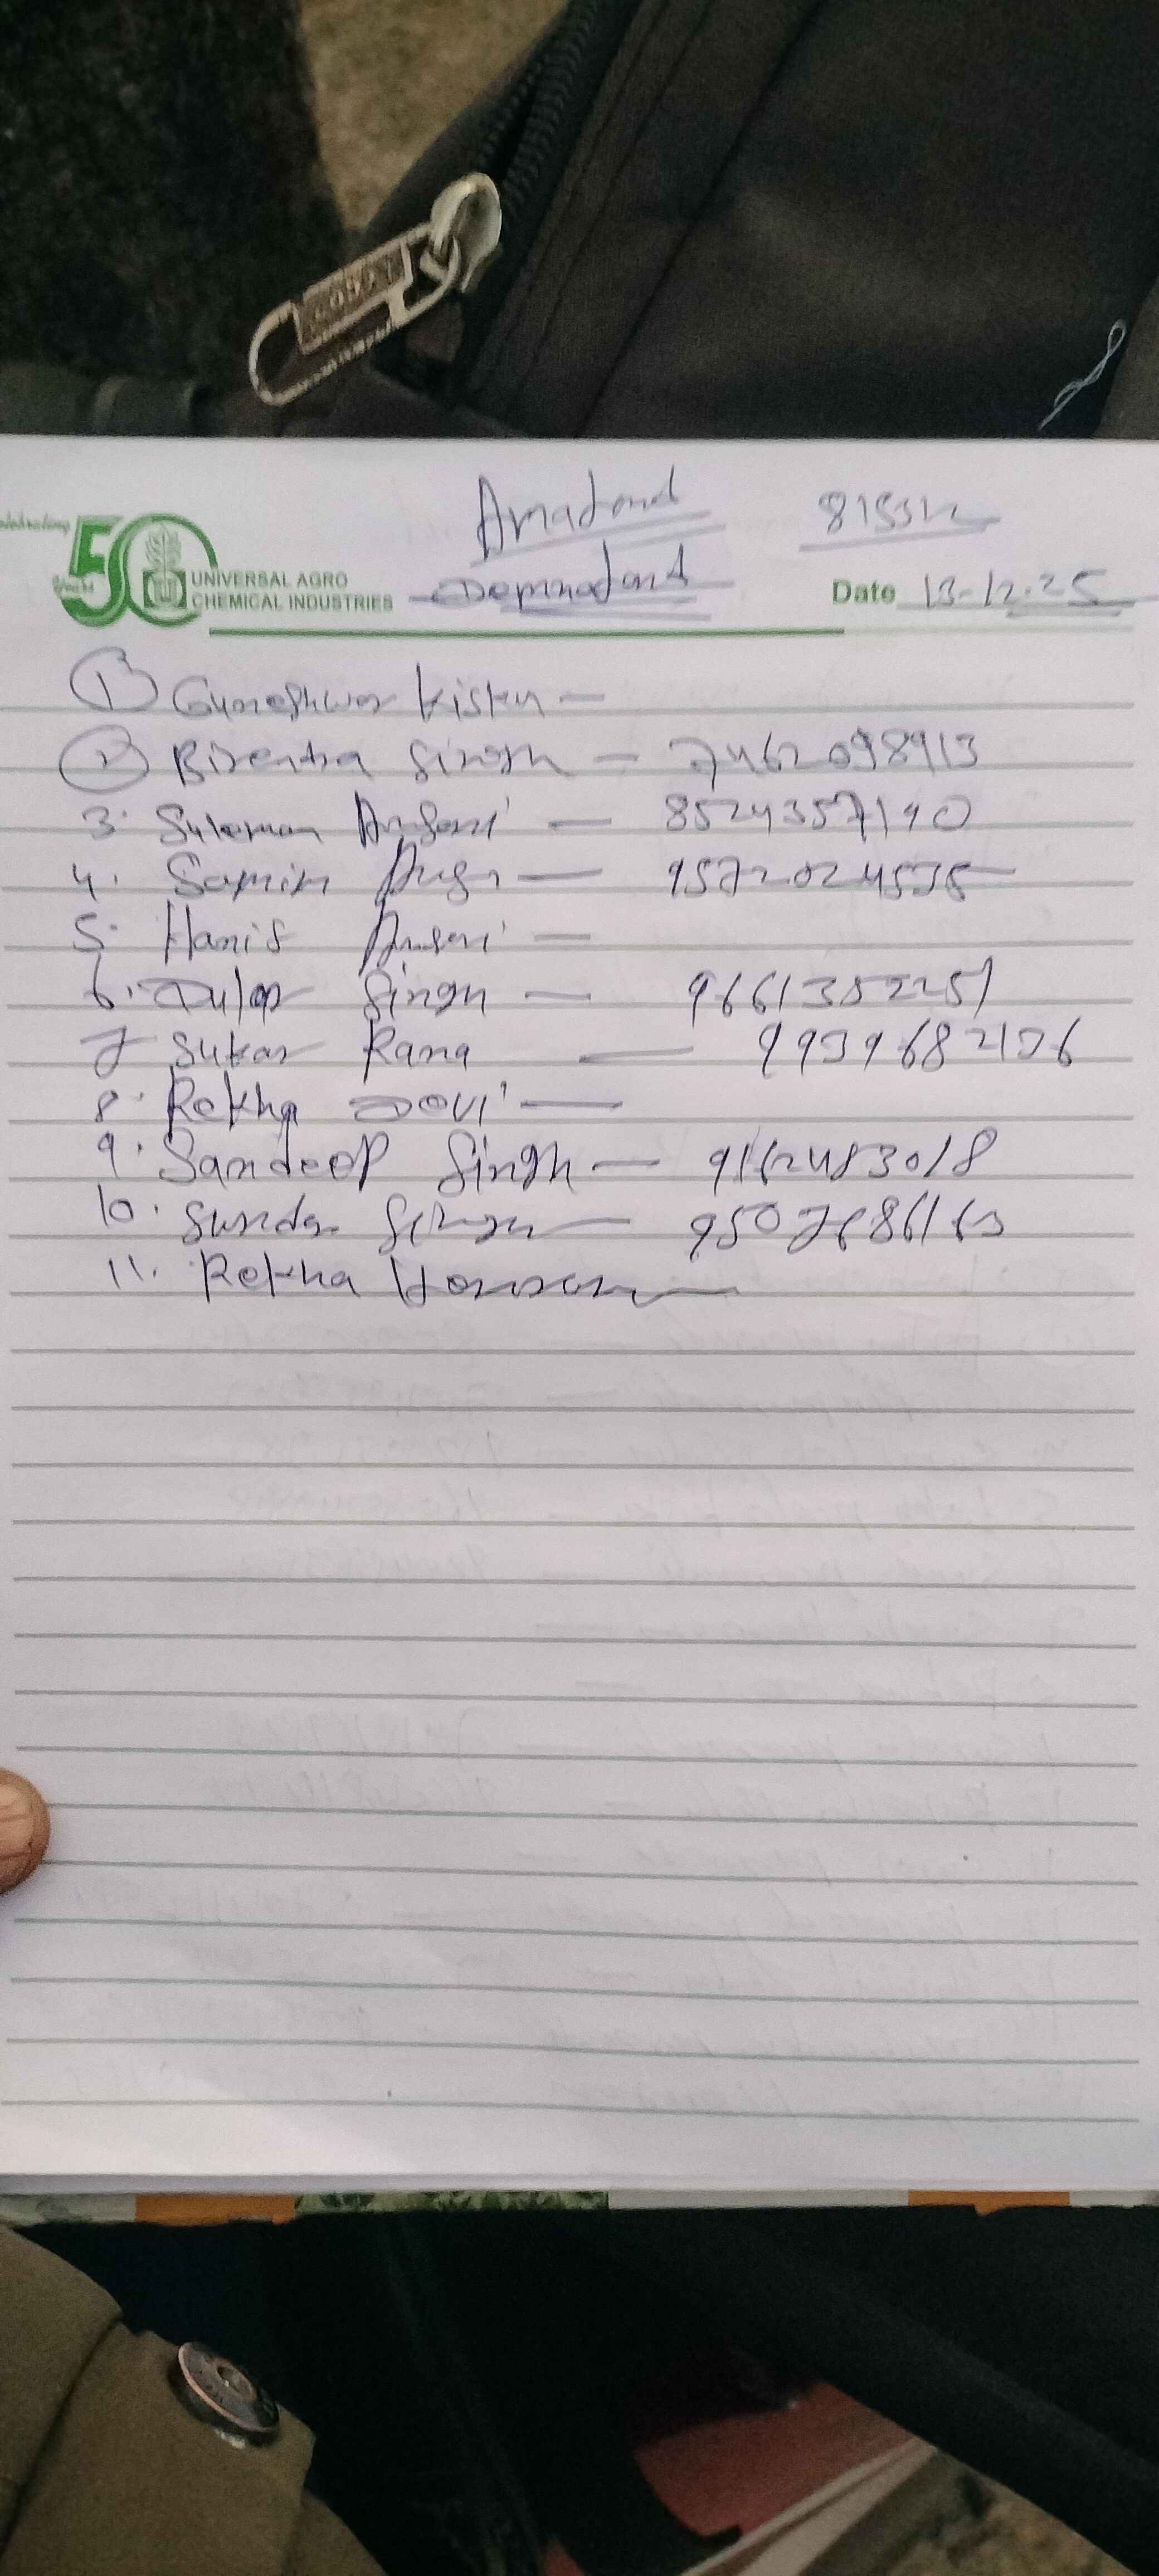 Celebrating
50
Years
UNIVERSAL AGRO
CHEMICAL INDUSTRIES
Date 13-12-25
1 Guneshwor Kisku -
2 Birendra Singh - 7462098913
3. Suleman Ansari - 8524357190
4. Samim - 9572024535
5. Hanif Ansari -
6. Dular Singh - 9661352251
7 Sukar Rana - 9939682136
8. Rekha Devi -
9. Sandeep Singh - 9162483018
10. Sundar Singh - 9507686163
11. Rekha